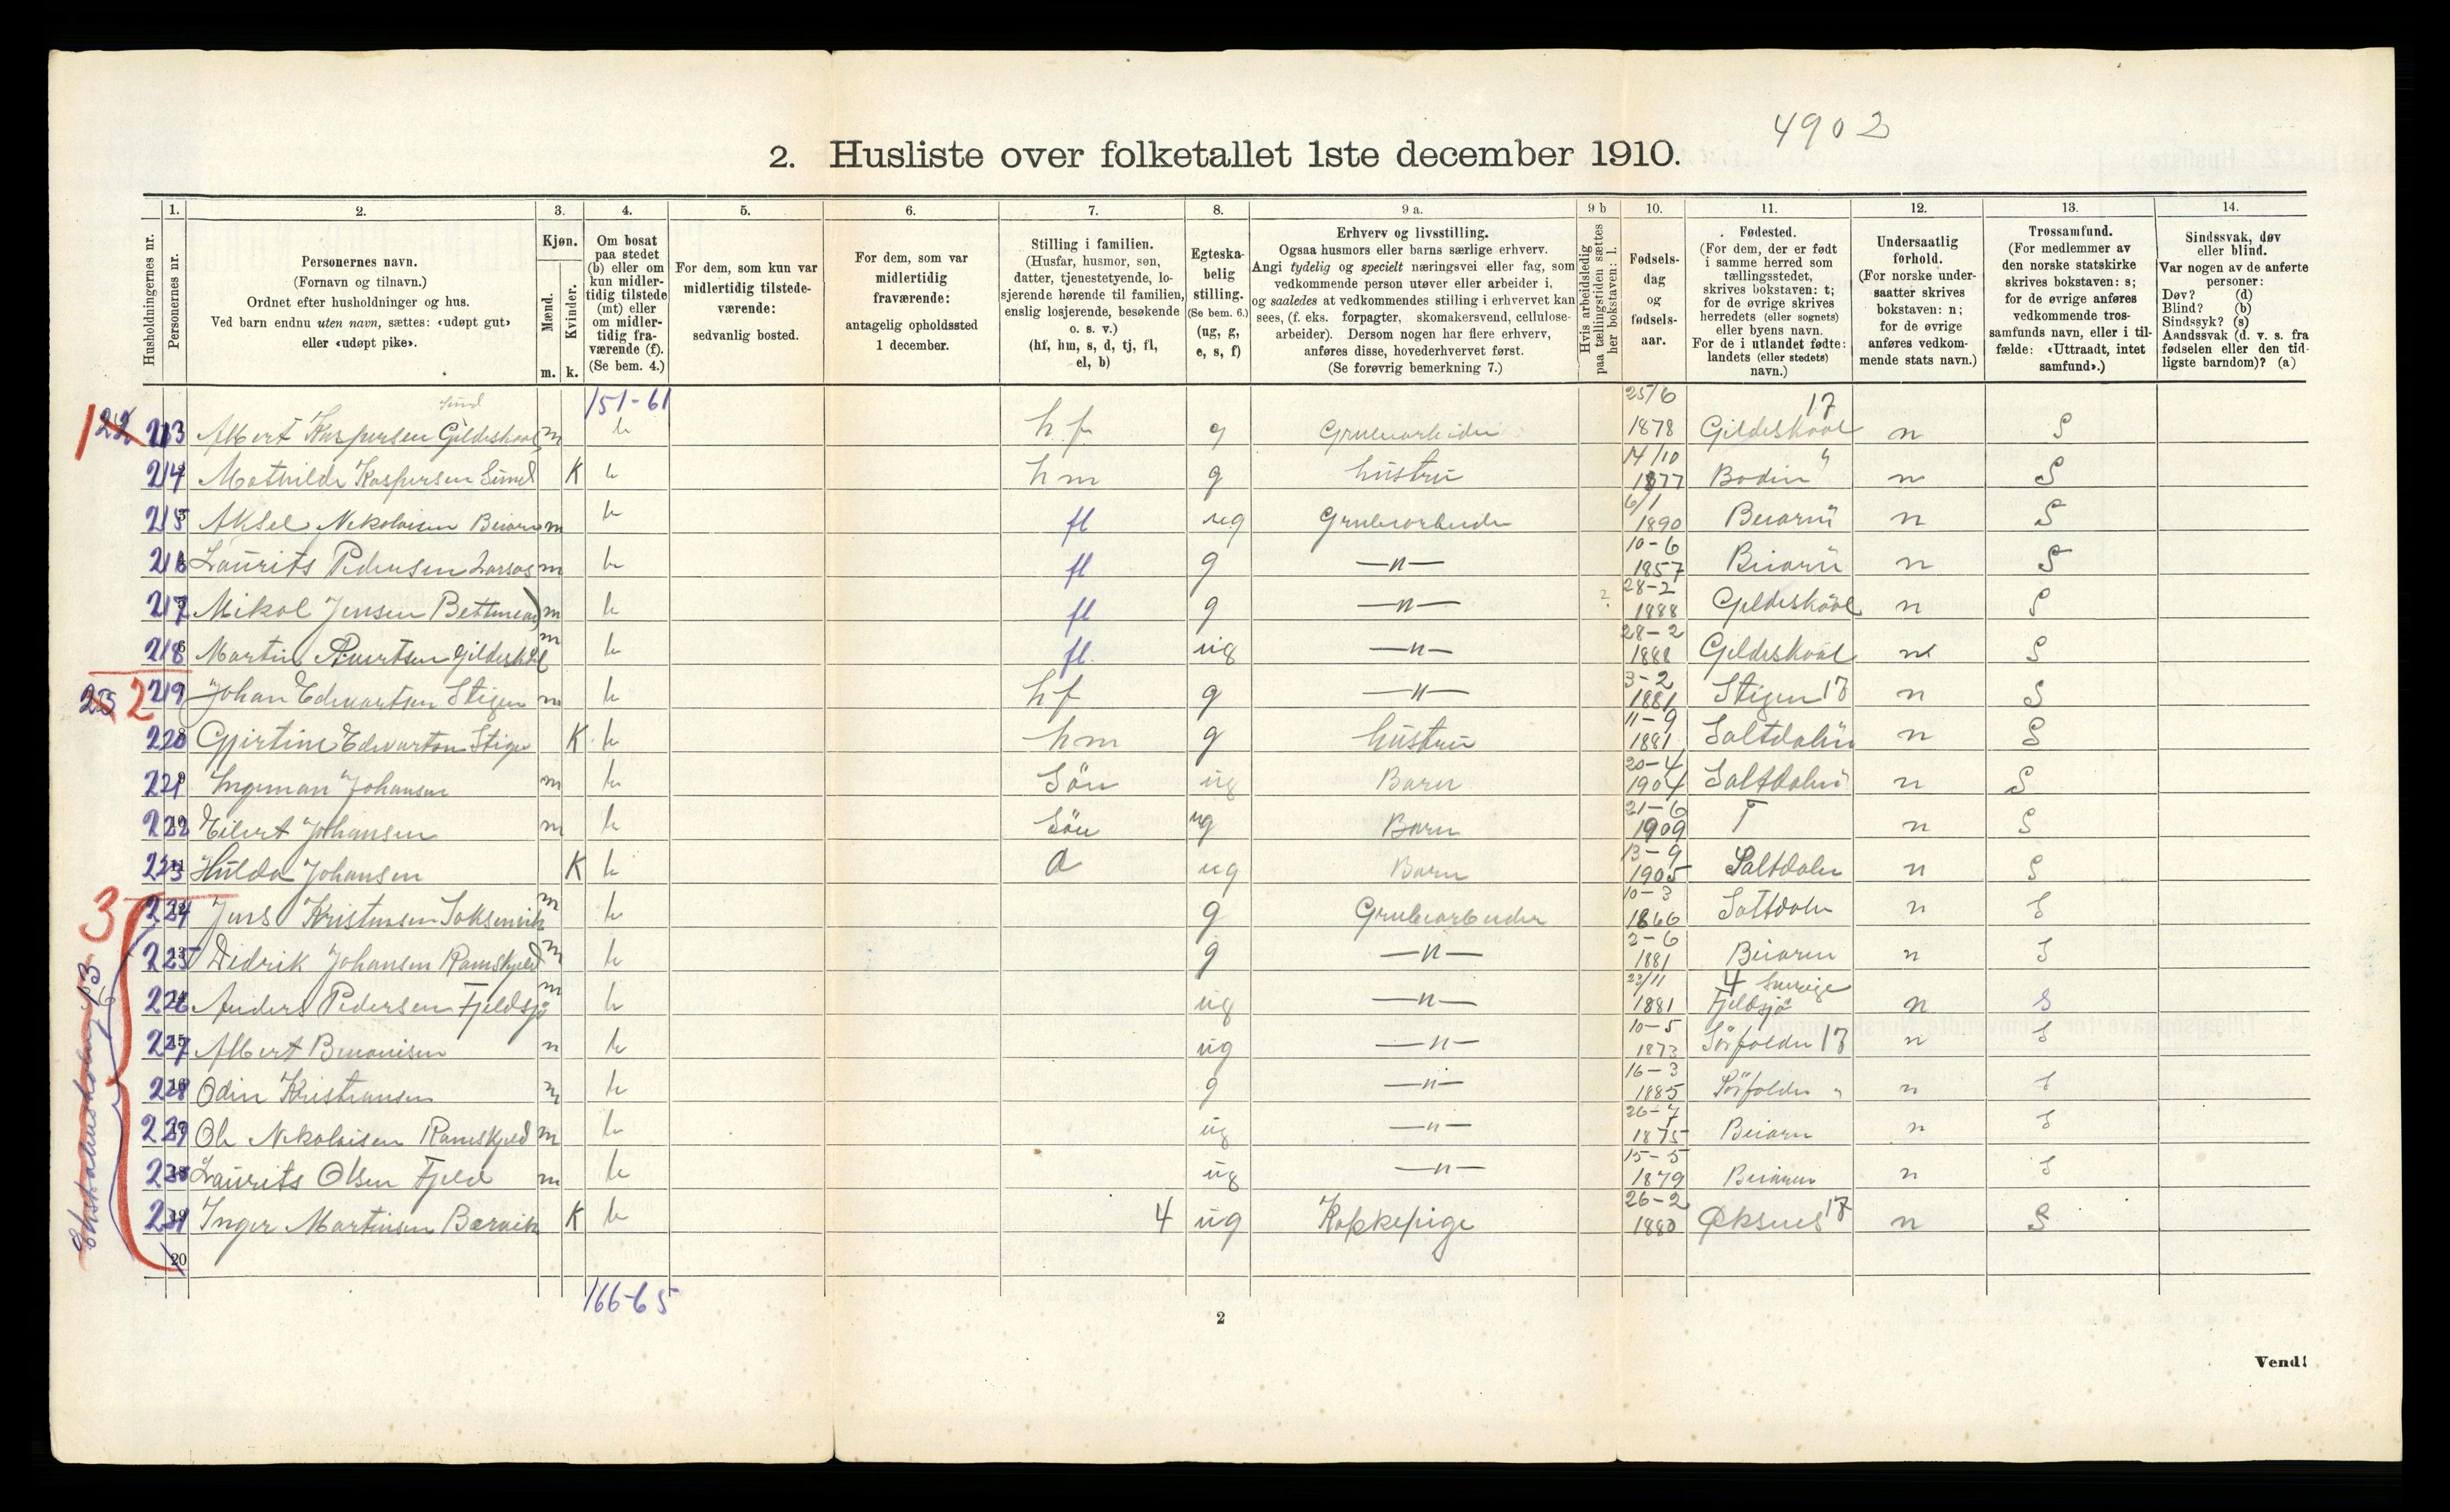 4902
2. Husliste over folketallet 1ste december 1910.
1. 2. 3. 4. 5. 6. 7. 8. 9 a. 9 b 10. 11. 12. 13. 14.
Husholdningernes nr.
Personernes nr.
Personernes navn.
(Fornavn og tilnavn.)
Ordnet efter husholdninger og hus.
Ved barn endnu uten navn, sættes: «udøpt gut»
eller «udøpt pike».
Kjøn.
Mænd.
Kvinder.
m. k.
Om bosat
paa stedet
(b) eller om
kun midler-
tidig tilstede
(mt) eller
om midler-
tidig fra-
værende (f).
(Se bem. 4.)
For dem, som kun var
midlertidig tilstede-
værende:
sedvanlig bosted.
For dem, som var
midlertidig
fraværende:
antagelig opholdssted
1 december.
Stilling i familien.
(Husfar, husmor, søn,
datter, tjenestetyende, lo-
sjerende hørende til familien,
enslig losjerende, besøkende
o. s. v.)
(hf, hm, s, d, tj, fl,
el, b)
Egteska-
belig
stilling.
(Se bem. 6.)
(ug, g,
e, s, f)
Erhverv og livsstilling.
Ogsaa husmors eller barns særlige erhverv.
Angi tydelig og specielt næringsvei eller fag, som
vedkommende person utøver eller arbeider i,
og saaledes at vedkommendes stilling i erhvervet kan
sees, (f. eks. forpagter, skomakersvend, cellulose-
arbeider). Dersom nogen har flere erhverv,
anføres disse, hovederhvervet først.
(Se forøvrig bemerkning 7.)
Hvis arbeidsledig
paa tællingstiden sættes
her bokstaven: l.
Fødsels-
dag
og
fødsels-
aar.
Fødested.
(For dem, der er født
i samme herred som
tællingsstedet,
skrives bokstaven: t;
for de øvrige skrives
herredets (eller sognets)
eller byens navn.
For de i utlandet fødte:
landets (eller stedets)
navn.)
Undersaatlig
forhold.
(For norske under-
saatter skrives
bokstaven: n;
for de øvrige
anføres vedkom-
mende stats navn.)
Trossamfund.
(For medlemmer av
den norske statskirke
skrives bokstaven: s;
for de øvrige anføres
vedkommende tros-
samfunds navn, eller i til-
fælde: «Uttraadt, intet
samfund».)
Sindssvak, døv
eller blind.
Var nogen av de anførte
personer:
Døv? (d)
Blind? (b)
Sindssyk? (s)
Aandssvak (d. v. s. fra
fødselen eller den tid-
ligste barndom)? (a)
151-61
1 22 213 Albert Kaspersen Gildeskaal Sund m b hf g Grubearbeider 25/6 1878 Gildeskaal 17 n S
214 Mathilde Kaspersen Sund K b hm g hustru 14/10 1877 Bodin " n S
215 Aksel Nikolaisen Beiarn m b fl ug Grubearbeider 6/1 1890 Beiarn n S
216 Laurits Pedersen m b fl g —"— 10-6 1857 Beiarn n S
217 Mikal Jensen m b fl g —"— ? 28-2 1888 Gildeskaal n S
218 Martin Gildeskål m b fl ug —"— 28-2 1888 Gildeskaal n S
23 2 219 Johan Edvartsen Stigen m b hf g —"— 3-2 1881 Stigen 17 n S
220 Gjertine Edvartsen Stigen K b hm g hustru 11-9 1881 Saltdalen n S
221 Ingeman Johansen m b Sön ug Barn 20-4 1904 Saltdalen n S
222 Eilert Johansen m b Sön ug Barn 21-6 1909 T n S
223 Hulda Johansen K b d ug Barn 13-9 1905 Saltdalen n S
3 224 Jens Kristensen Saksenvik m b g Grubearbeider 10-3 1866 Saltdalen n S
225 Didrik Johansen Ramskjeld m b g —"— 2-6 1881 Beiaren n S
226 Anders Pedersen Fjeldsjö m b ug —"— 23/11 1881 4 Sverige Fjeldsjö n S
227 Albert m b ug —"— 10-5 1873 Sörfolden 17 n S
228 Odin Kristiansen m b g —"— 16-3 1885 Sörfolden " n S
229 Ole Nikolaisen Ramskjeld m b ug —"— 26-7 1875 Beiarn n S
230 Laurits Olsen Fjeld m b ug —"— 15-5 1879 Beiaren n S
231 Inger Martinsen K b 4 ug Kokkepige 26-2 1880 Øksnes 17 n S
20
166-65
2
Vend!